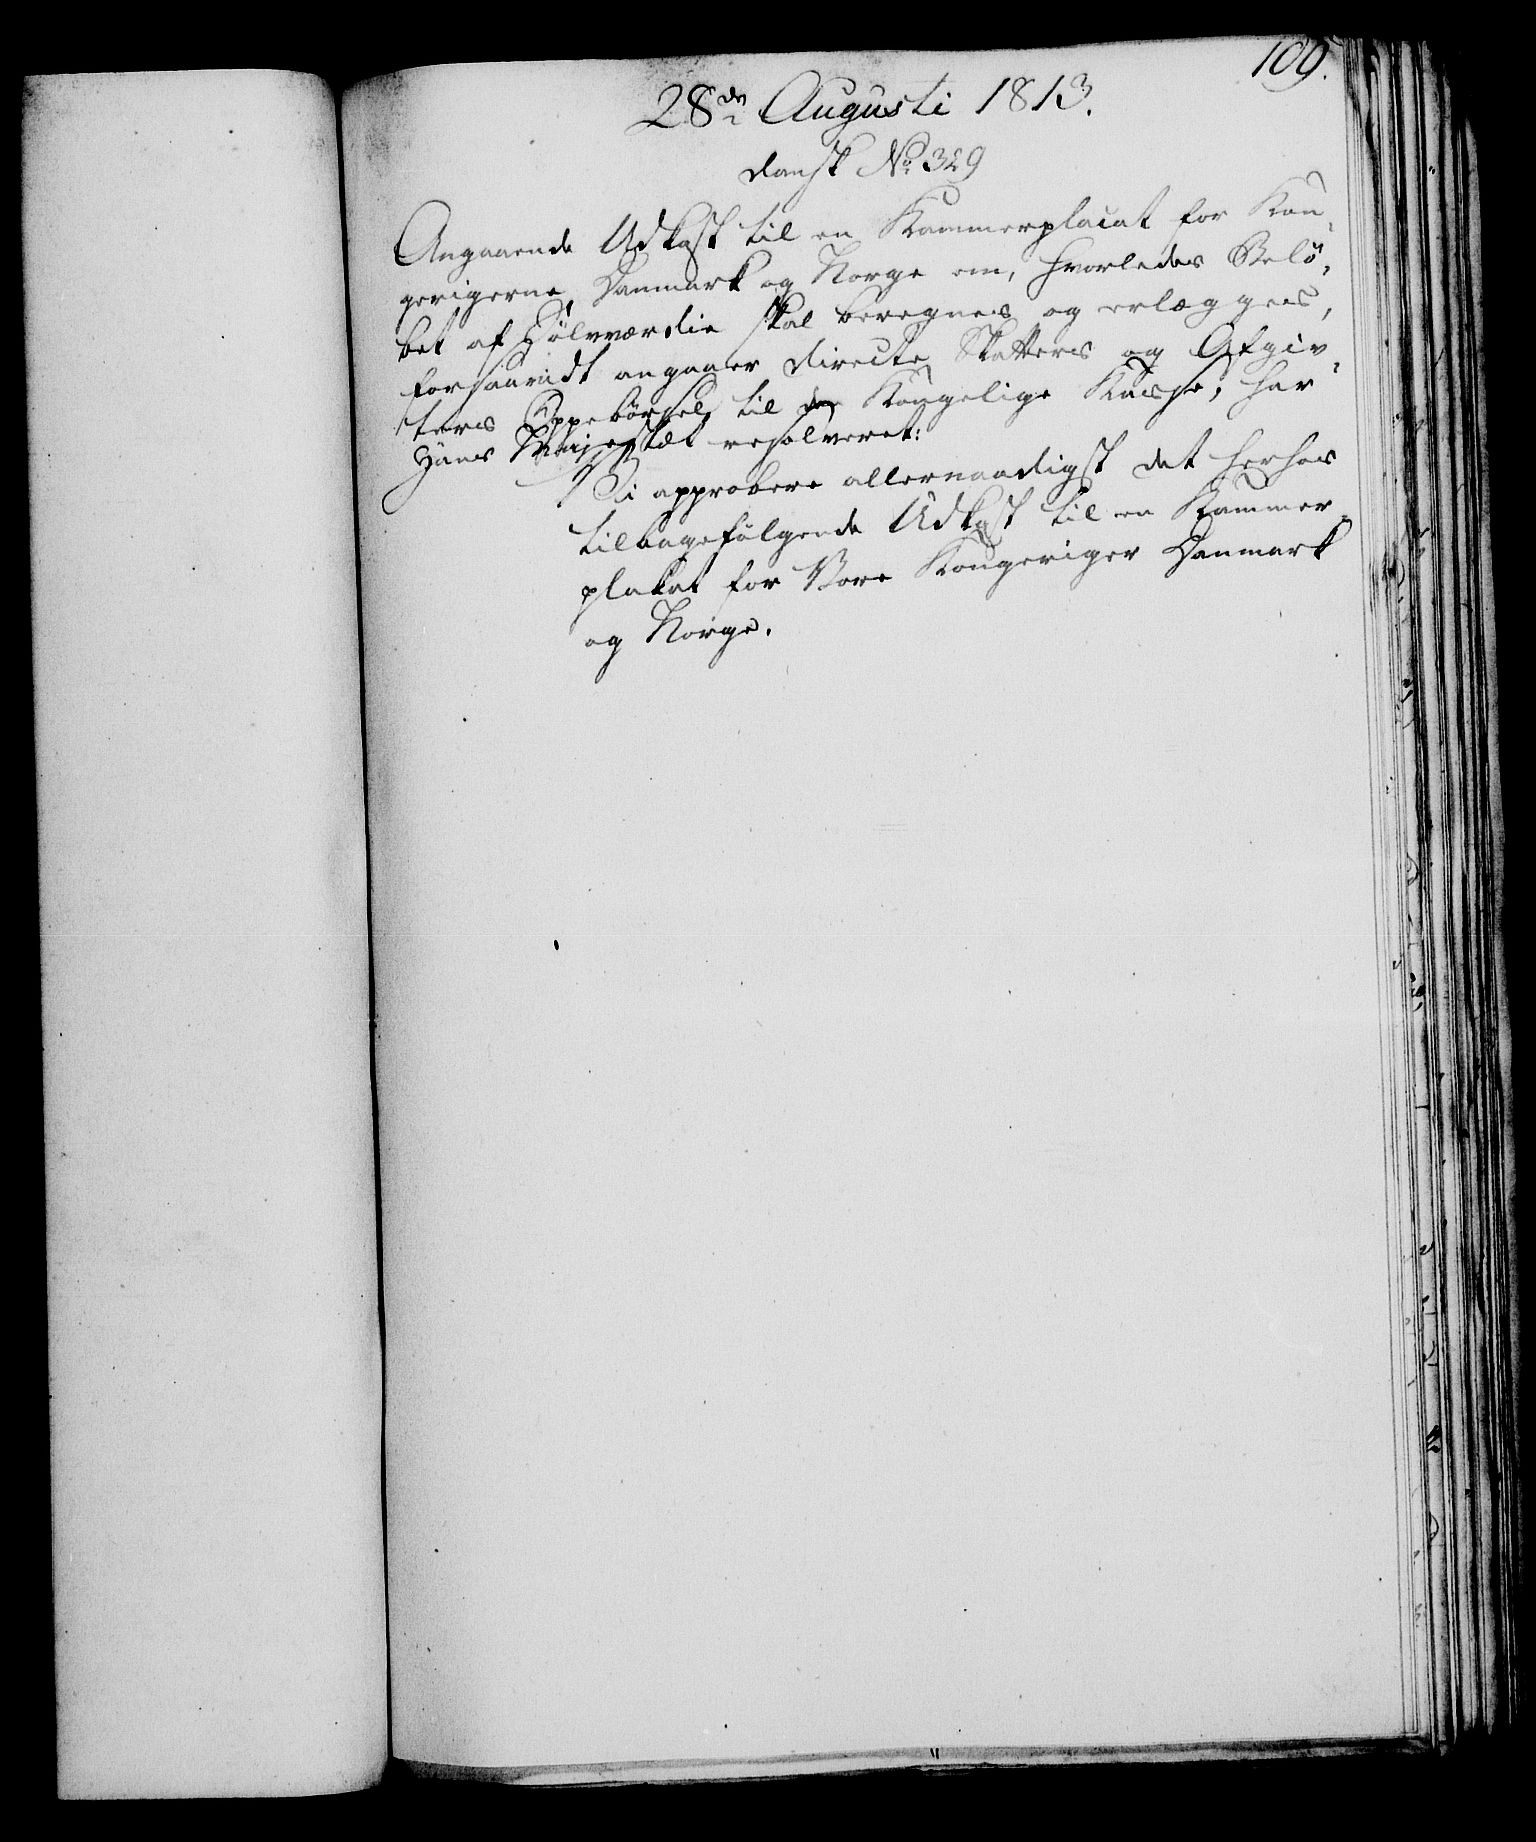 109.
28de Augusti 1813.
dansk No 329
Angaaende Udkast til en Kammerplacat for Kon-
gerigerne Danmark og Norge om, hvorledes Belö-
bet af Sölvværdie skal beregnes og erlægges,
forsaavidt angaaer directe Skatters og Afgiv-
ters Oppebörsel til den Kongelige Kasse; har
Hans Majestæt resolveret:
Vi approbere allernaadigst det herhos
tilbagefölgende Udkast til en Kammer-
plakat for Vore Kongeriger Danmark
og Norge.